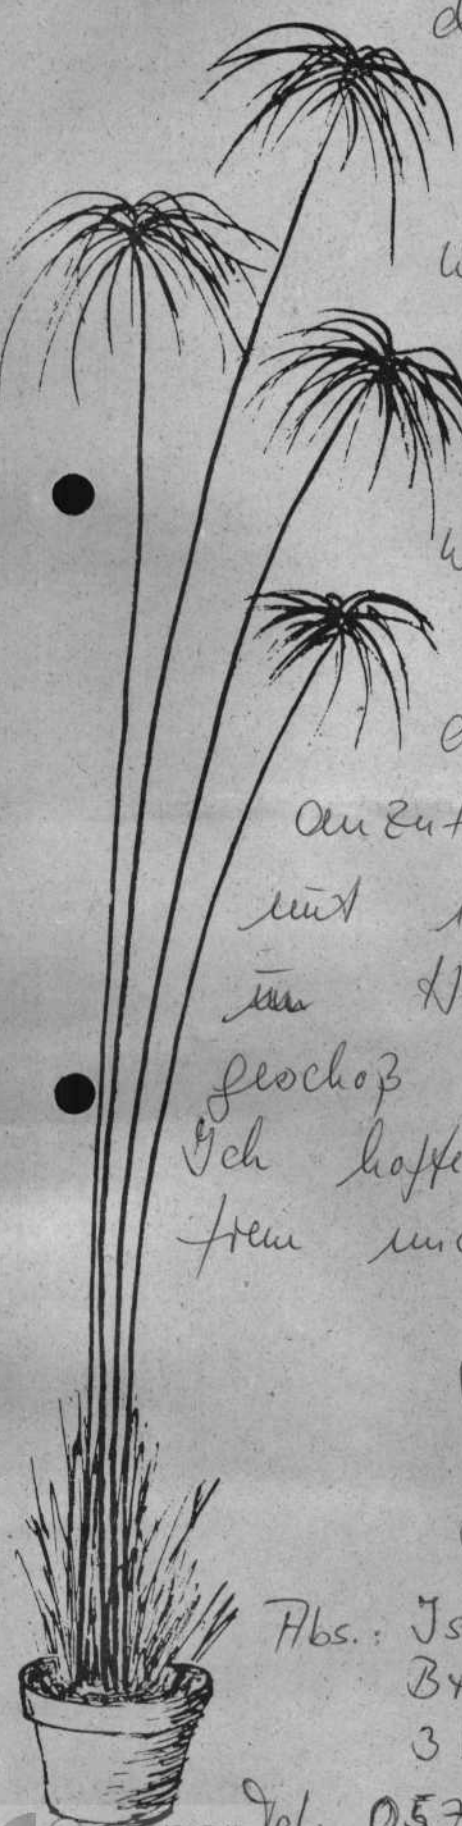 d
w
w
anzut
mit
im
geschoß
Ich hoffe
freu mic
Abs.: Is
3
Tel. 057